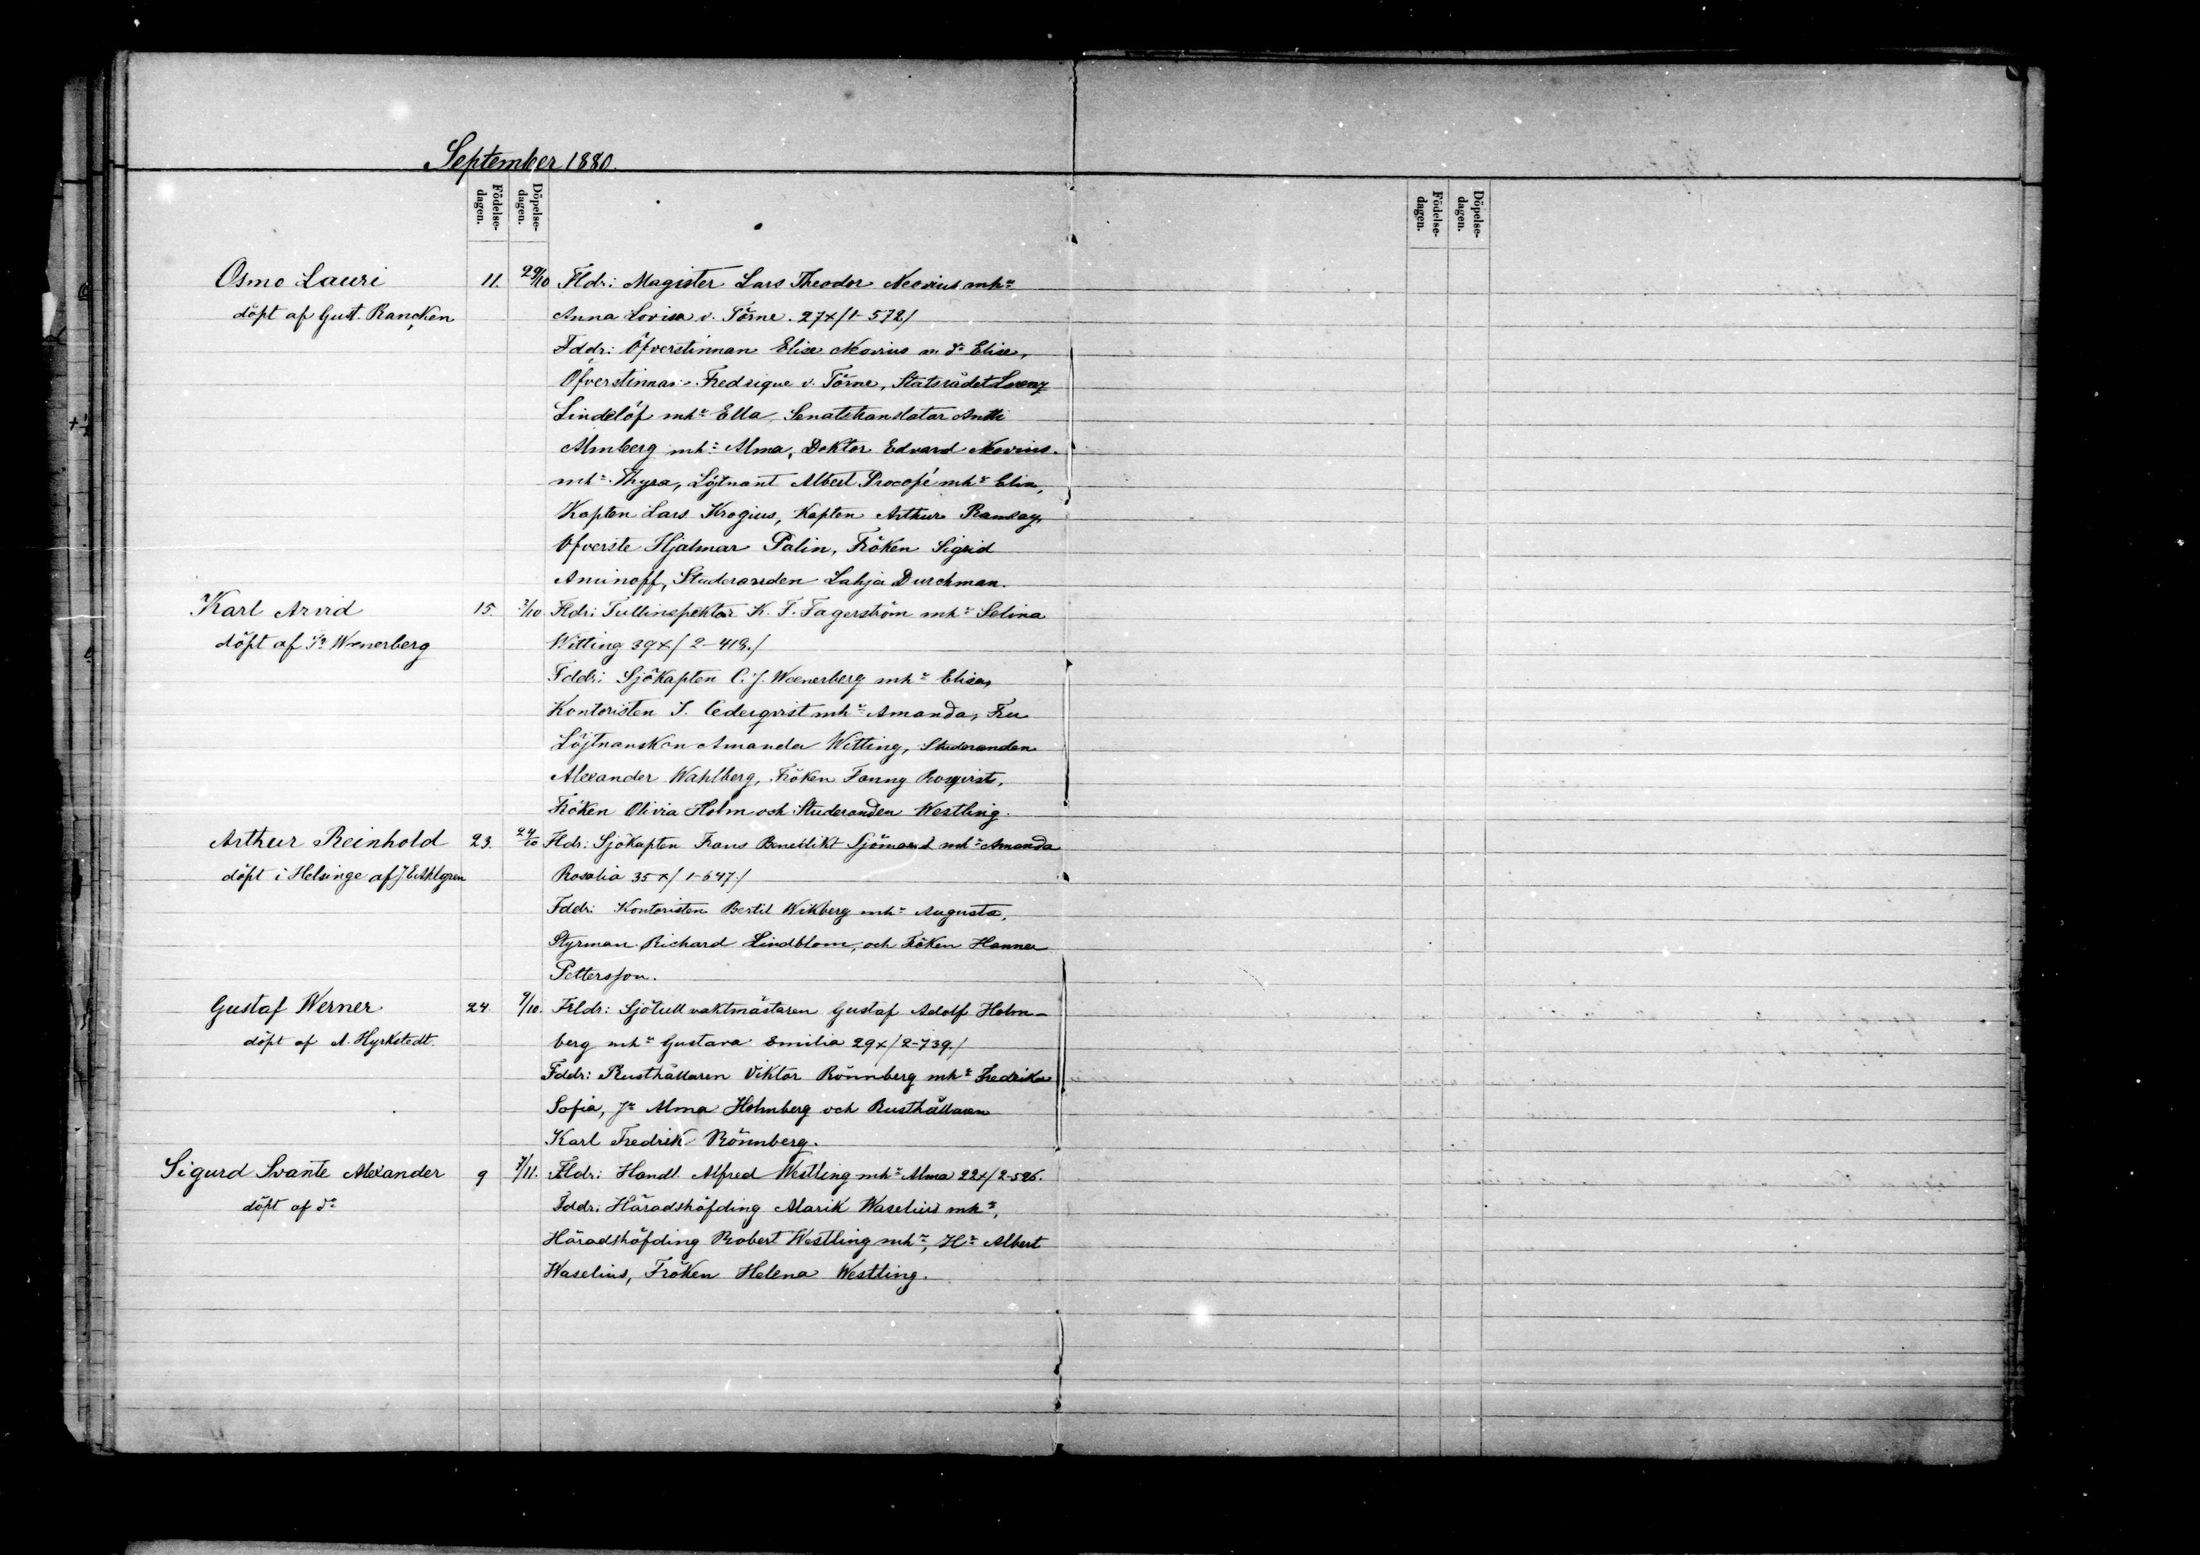 September 1880.
Födelse-dagen. Döpelse-dagen.
Födelse-dagen. Döpelse-dagen.
Osmo Lauri 11. 29/10 Fldr: Magister Lars Theodor Neovius mhu
döpt af Gust. Rancken Anna Lovisa v. Törne. 27 x/1-572/
Fddr: Öfverstinnan Elise Neovius m do Elise,
Öfverstinnan Fredrique v. Törne, Statsrådet Lorenz
Lindelöf mhu Ella, Senatstranslator Antti
Almberg mhu Alma, Doktor Edvard Neovius
mhu Thyra, Löjtnant Albert Procopé mhu Elin,
Kapten Lars Krogius, Kapten Arthur Ramsay,
Öfverste Hjalmar Palin, Fröken Sigrid
Aminoff, Studeranden Lahja Durchman.
Karl Arvid 15. /10 Fldr: Tullinspektor K. F. Fagerström mhu Selina
döpt af Wænerberg Witting 39 x/2-418./
Fddr: Sjökapten C. J. Wænerberg mhu Elisa,
Kontoristen J. Cederqvist mhu Amanda, Fru
Löjtnanskan Amanda Witting, Studeranden
Alexander Wahlberg, Fröken Fanny Rosqvist,
Fröken Olivia Holm och Studeranden Westling.
Arthur Reinhold 23. 24/10 Fldr: Sjökapten Frans Benedikt Sjöman mhu Amanda
döpt i Helsinge af Rosalia 35 x/1-647./
Fddr: Kontoristen Bertil Wikberg mhu Augusta,
Styrman Richard Lindblom, och Fröken Hanna
Pettersson.
Gustaf Werner 24. 9/10. Frldr: Sjötull vaktmästaren Gustaf Adolf Holm-
döpt af A. Hyrkstedt. berg mhu Gustava Emilia 29 x/2-739./
Fddr: Rusthållaren Viktor Rönnberg mhu Fredrika
Sofia, Jn Alma Holmberg och Rusthållaren
Karl Fredrik Rönnberg.
Sigurd Svante Alexander 9 7/11. Fldr: Handl. Alfred Westling mhu Alma 22 x/2-526.
döpt af do Fddr: Häradshöfding Alarik Waselius mhu,
Häradshöfding Robert Westling mhu, Hr Albert
Waselius, Fröken Helena Westling.